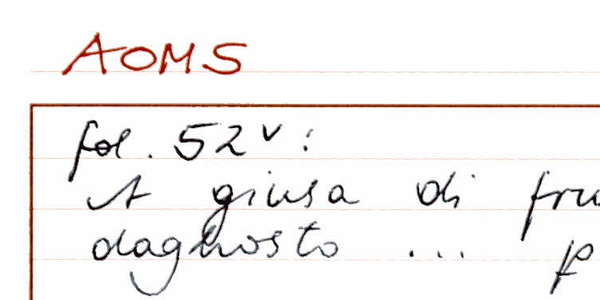 AOMS
fol. 52v:
A giusa di fru
daghosto ... f